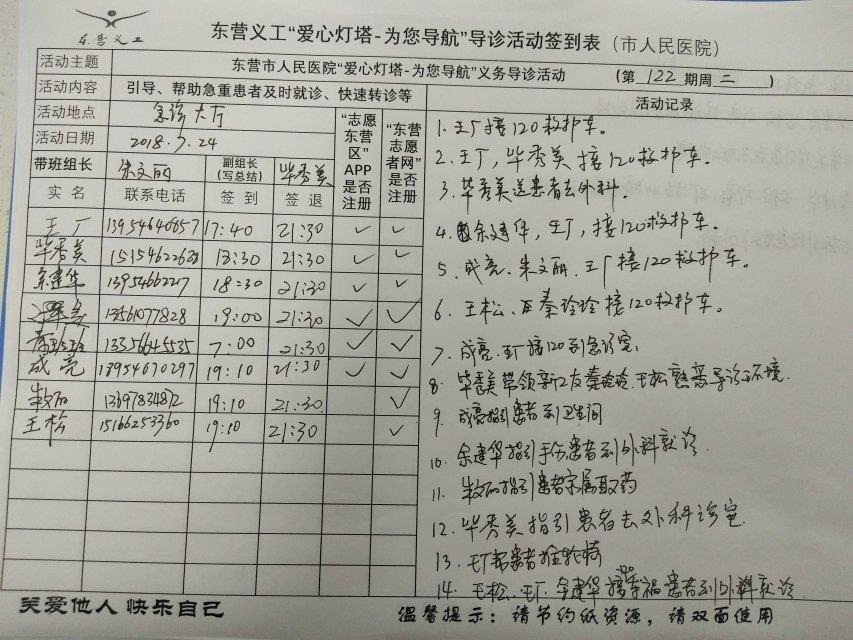 东营义工
东营义工“爱心灯塔-为您导航”导诊活动签到表（市人民医院）
活动主题 东营市人民医院“爱心灯塔-为您导航”义务导诊活动 （第 122 期周 二 ）
活动内容 引导、帮助急重患者及时就诊、快速转诊等
活动地点 急诊大厅
活动日期 2018.7.24
带班组长 朱文丽 副组长（写总结） 毕秀美
“志愿东营区”APP是否注册
“东营志愿者网”是否注册
实名 联系电话 签到 签退
王厂 13954640657 17:40 21:30 ✓ ✓
毕秀美 21:30 ✓ ✓
余建华 13954662217 18:30 21:30 ✓ ✓
13561077828 19:00 21:30 ✓ ✓
13356645535 7:00 21:30 ✓ ✓
成亮 18954670297 19:10 21:30 ✓ ✓
19:10 21:30 ✓
王松 15166253360 19:10 21:30 ✓
活动记录
1. 王厂接120救护车。
2. 王厂，毕秀美接120救护车。
3. 毕秀美送患者去外科。
4. 余建华，王厂，接120救护车。
5. 成亮、朱文丽、王厂接120救护车。
6. 王松、秦玲玲接120救护车。
7. 成亮、王厂接120到急诊室。
8. 毕秀美带领新工友秦玲玲、王松熟悉导诊环境.
9. 成亮指引患者到卫生间
10. 余建华指引手伤患者到外科就诊.
11. 指引患者家属取药
12. 毕秀美指引患者去外科诊室.
13. 王厂帮患者推轮椅
14. 王松、王厂、余建华接车祸患者到外科就诊.
关爱他人 快乐自己
温馨提示：请节约纸资源，请双面使用